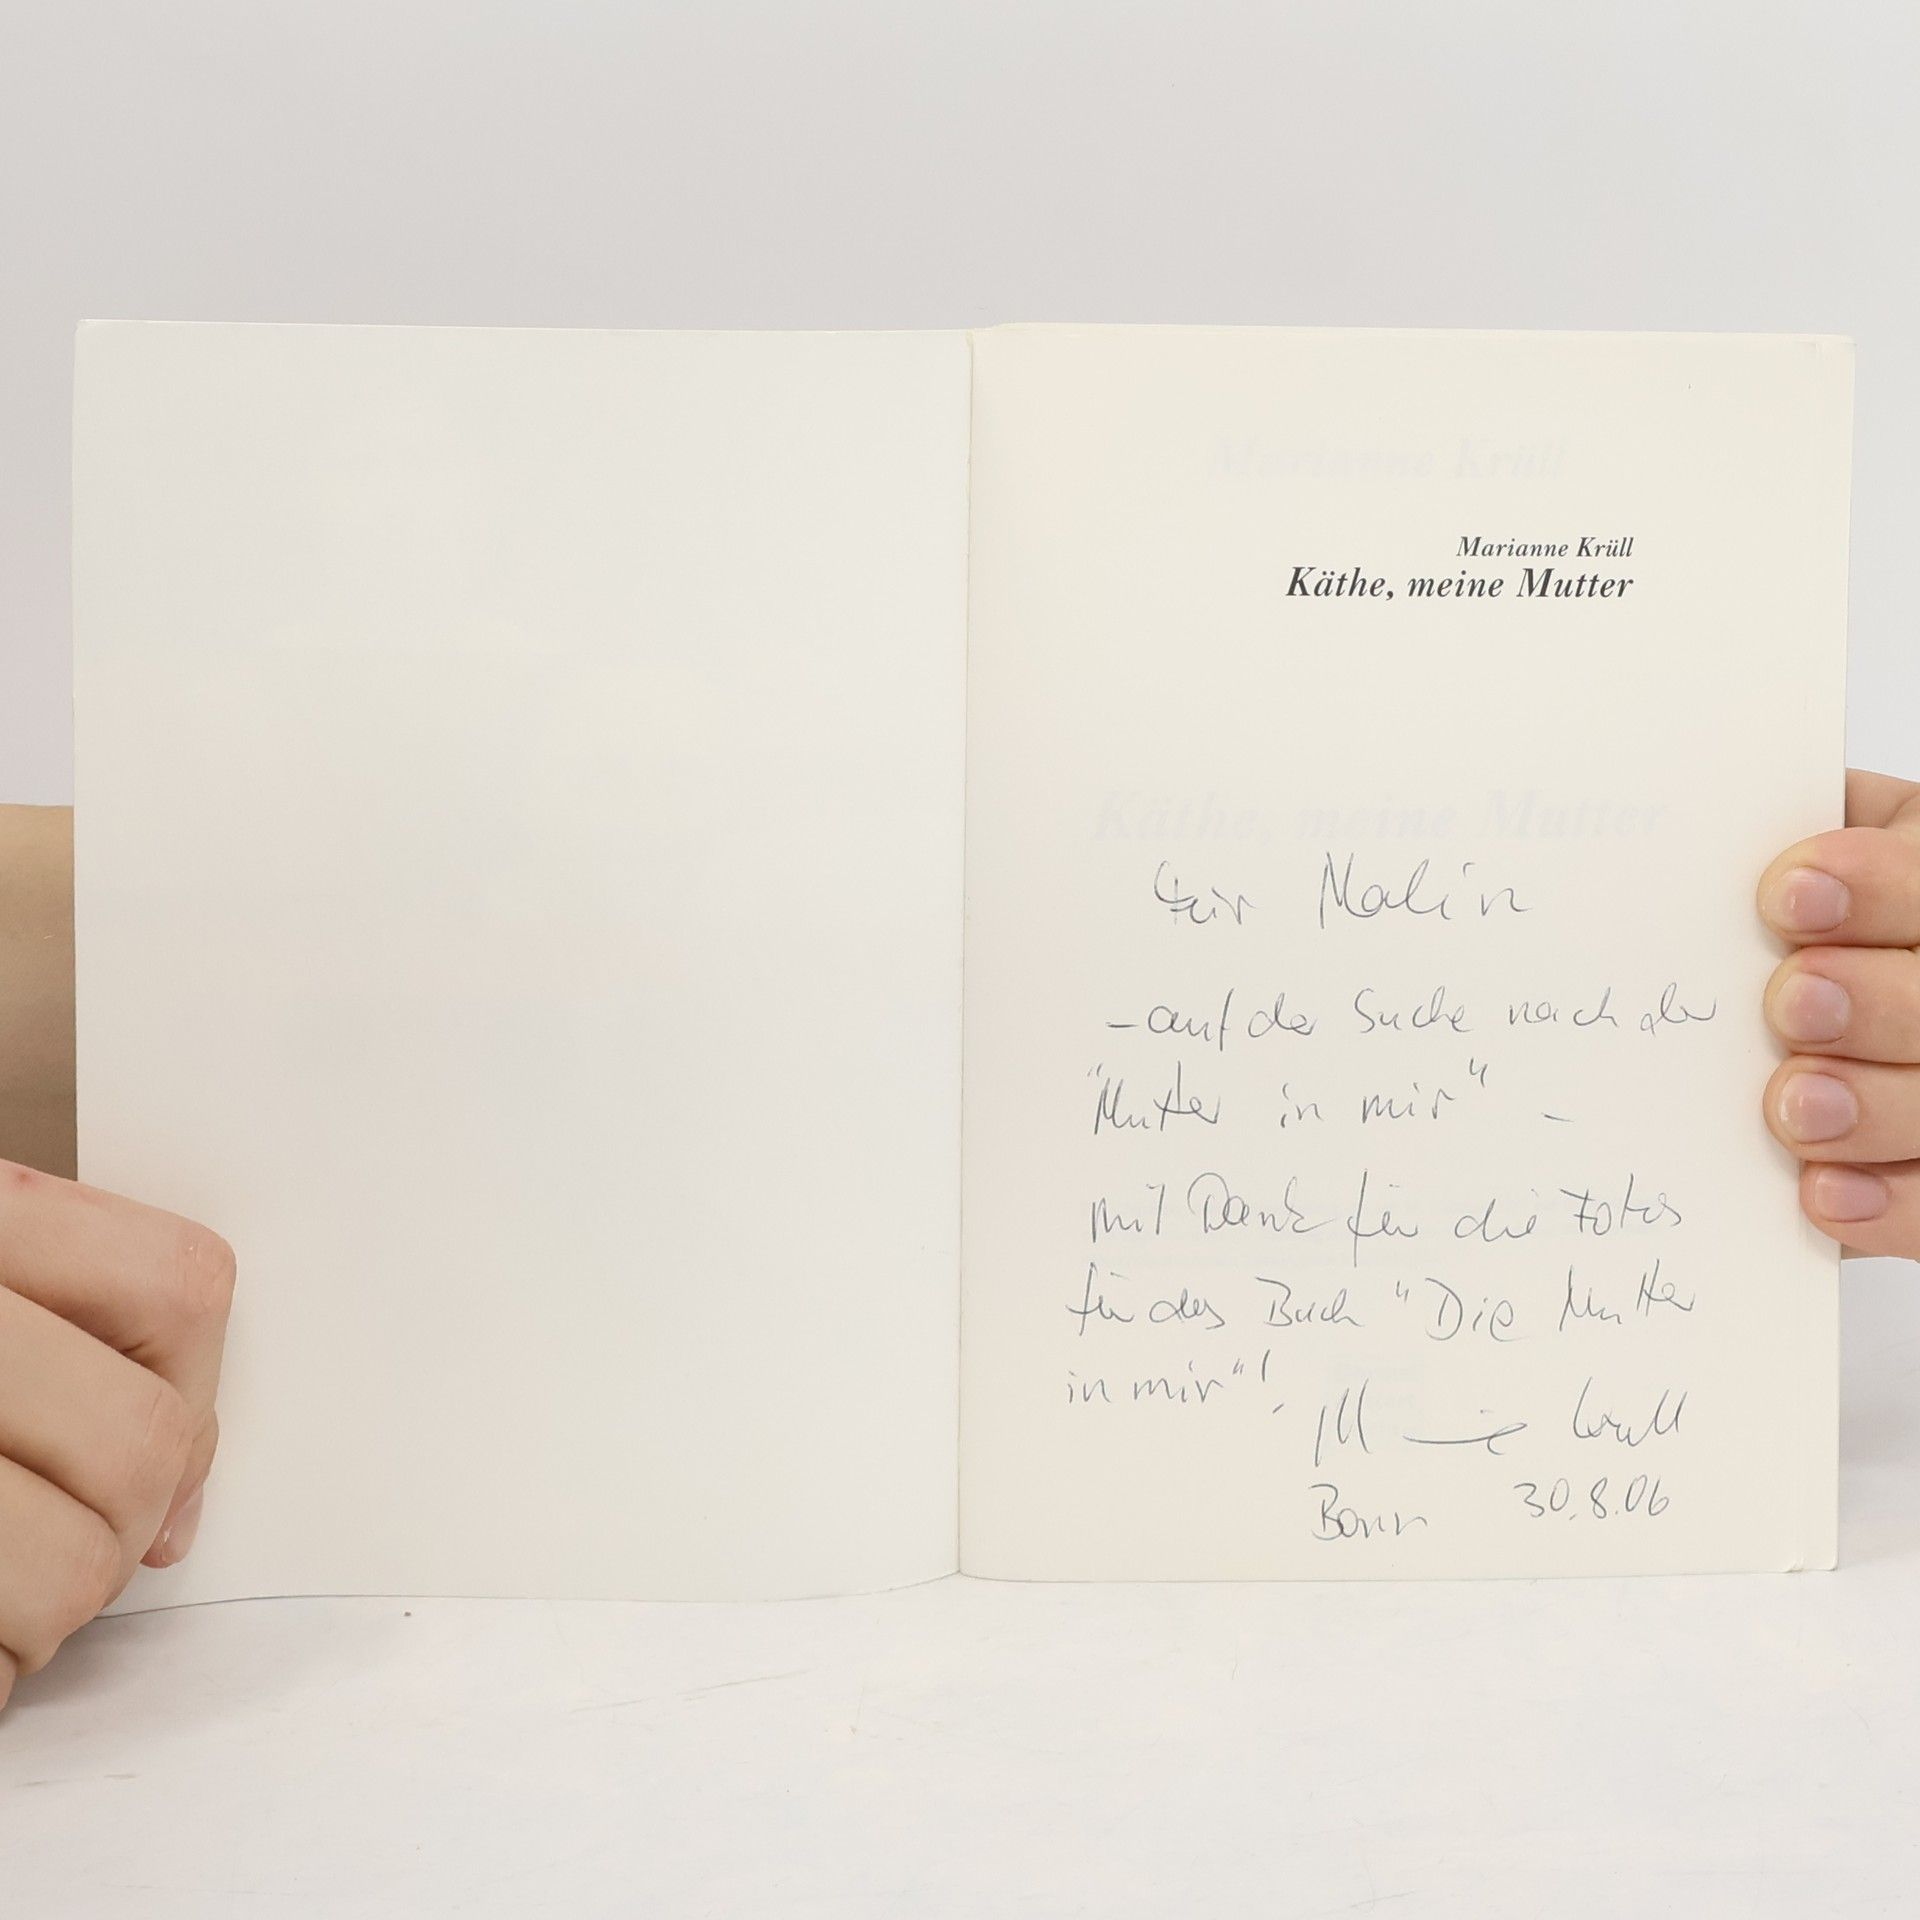 Marianne Krüll
Marianne Krüll
Käthe, meine Mutter
Käthe, meine Mutter
Für Malin
– auf der Suche nach der
"Mutter in mir" –
mit Dank für die Fotos
für das Buch "Die Mutter
in mir"!
Marianne Krüll
Bonn 30.8.06